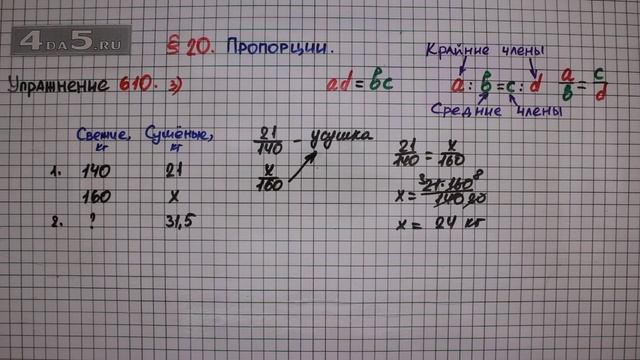 4DA5.RU
§ 20. Пропорции.
Крайние члены
Упражнение 610. з)
ad = bc
a : b = c : d
a/b = c/d
Средние члены
Свежие, кг Сушёные, кг
1. 140 21
160 x
2. ? 31,5
21/140 - усушка
x/160
21/140 = x/160
x = 3 21·160 8 / 140 20
x = 24 кг